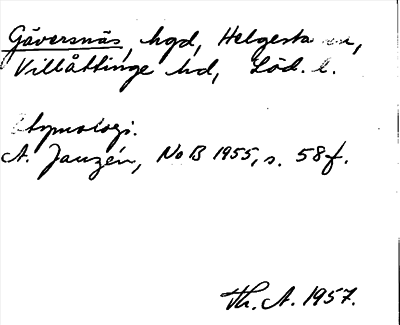 Gäversnäs, hgd, Helgesta sn,
Villåttinge hd, Söd. l.
Etymologi.
A. Janzén, NoB 1955, s. 58 f.
Th. A. 1957.